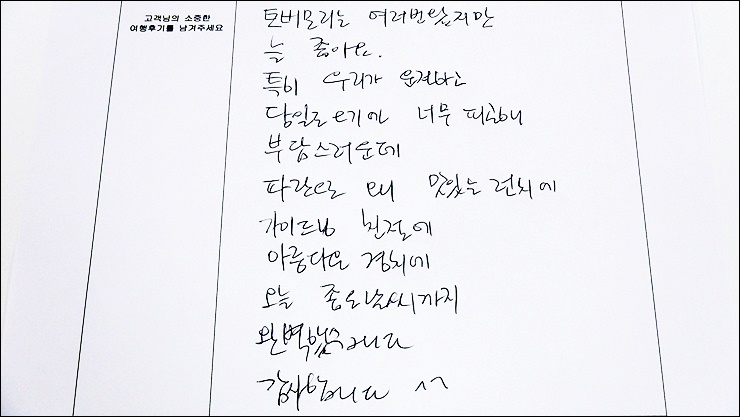 고객님의 소중한
여행후기를 남겨주세요
토버모리는 여러번왔지만
늘 좋아요.
특히 우리가 운전하고
당일로 오기에 너무 피곤해
부담스러운데
파란으로 와 맛있는 런치에
가이드님 친절에
아름다운 경치에
오늘 좋은날씨까지
완벽했습니다
감사합니다 ^^